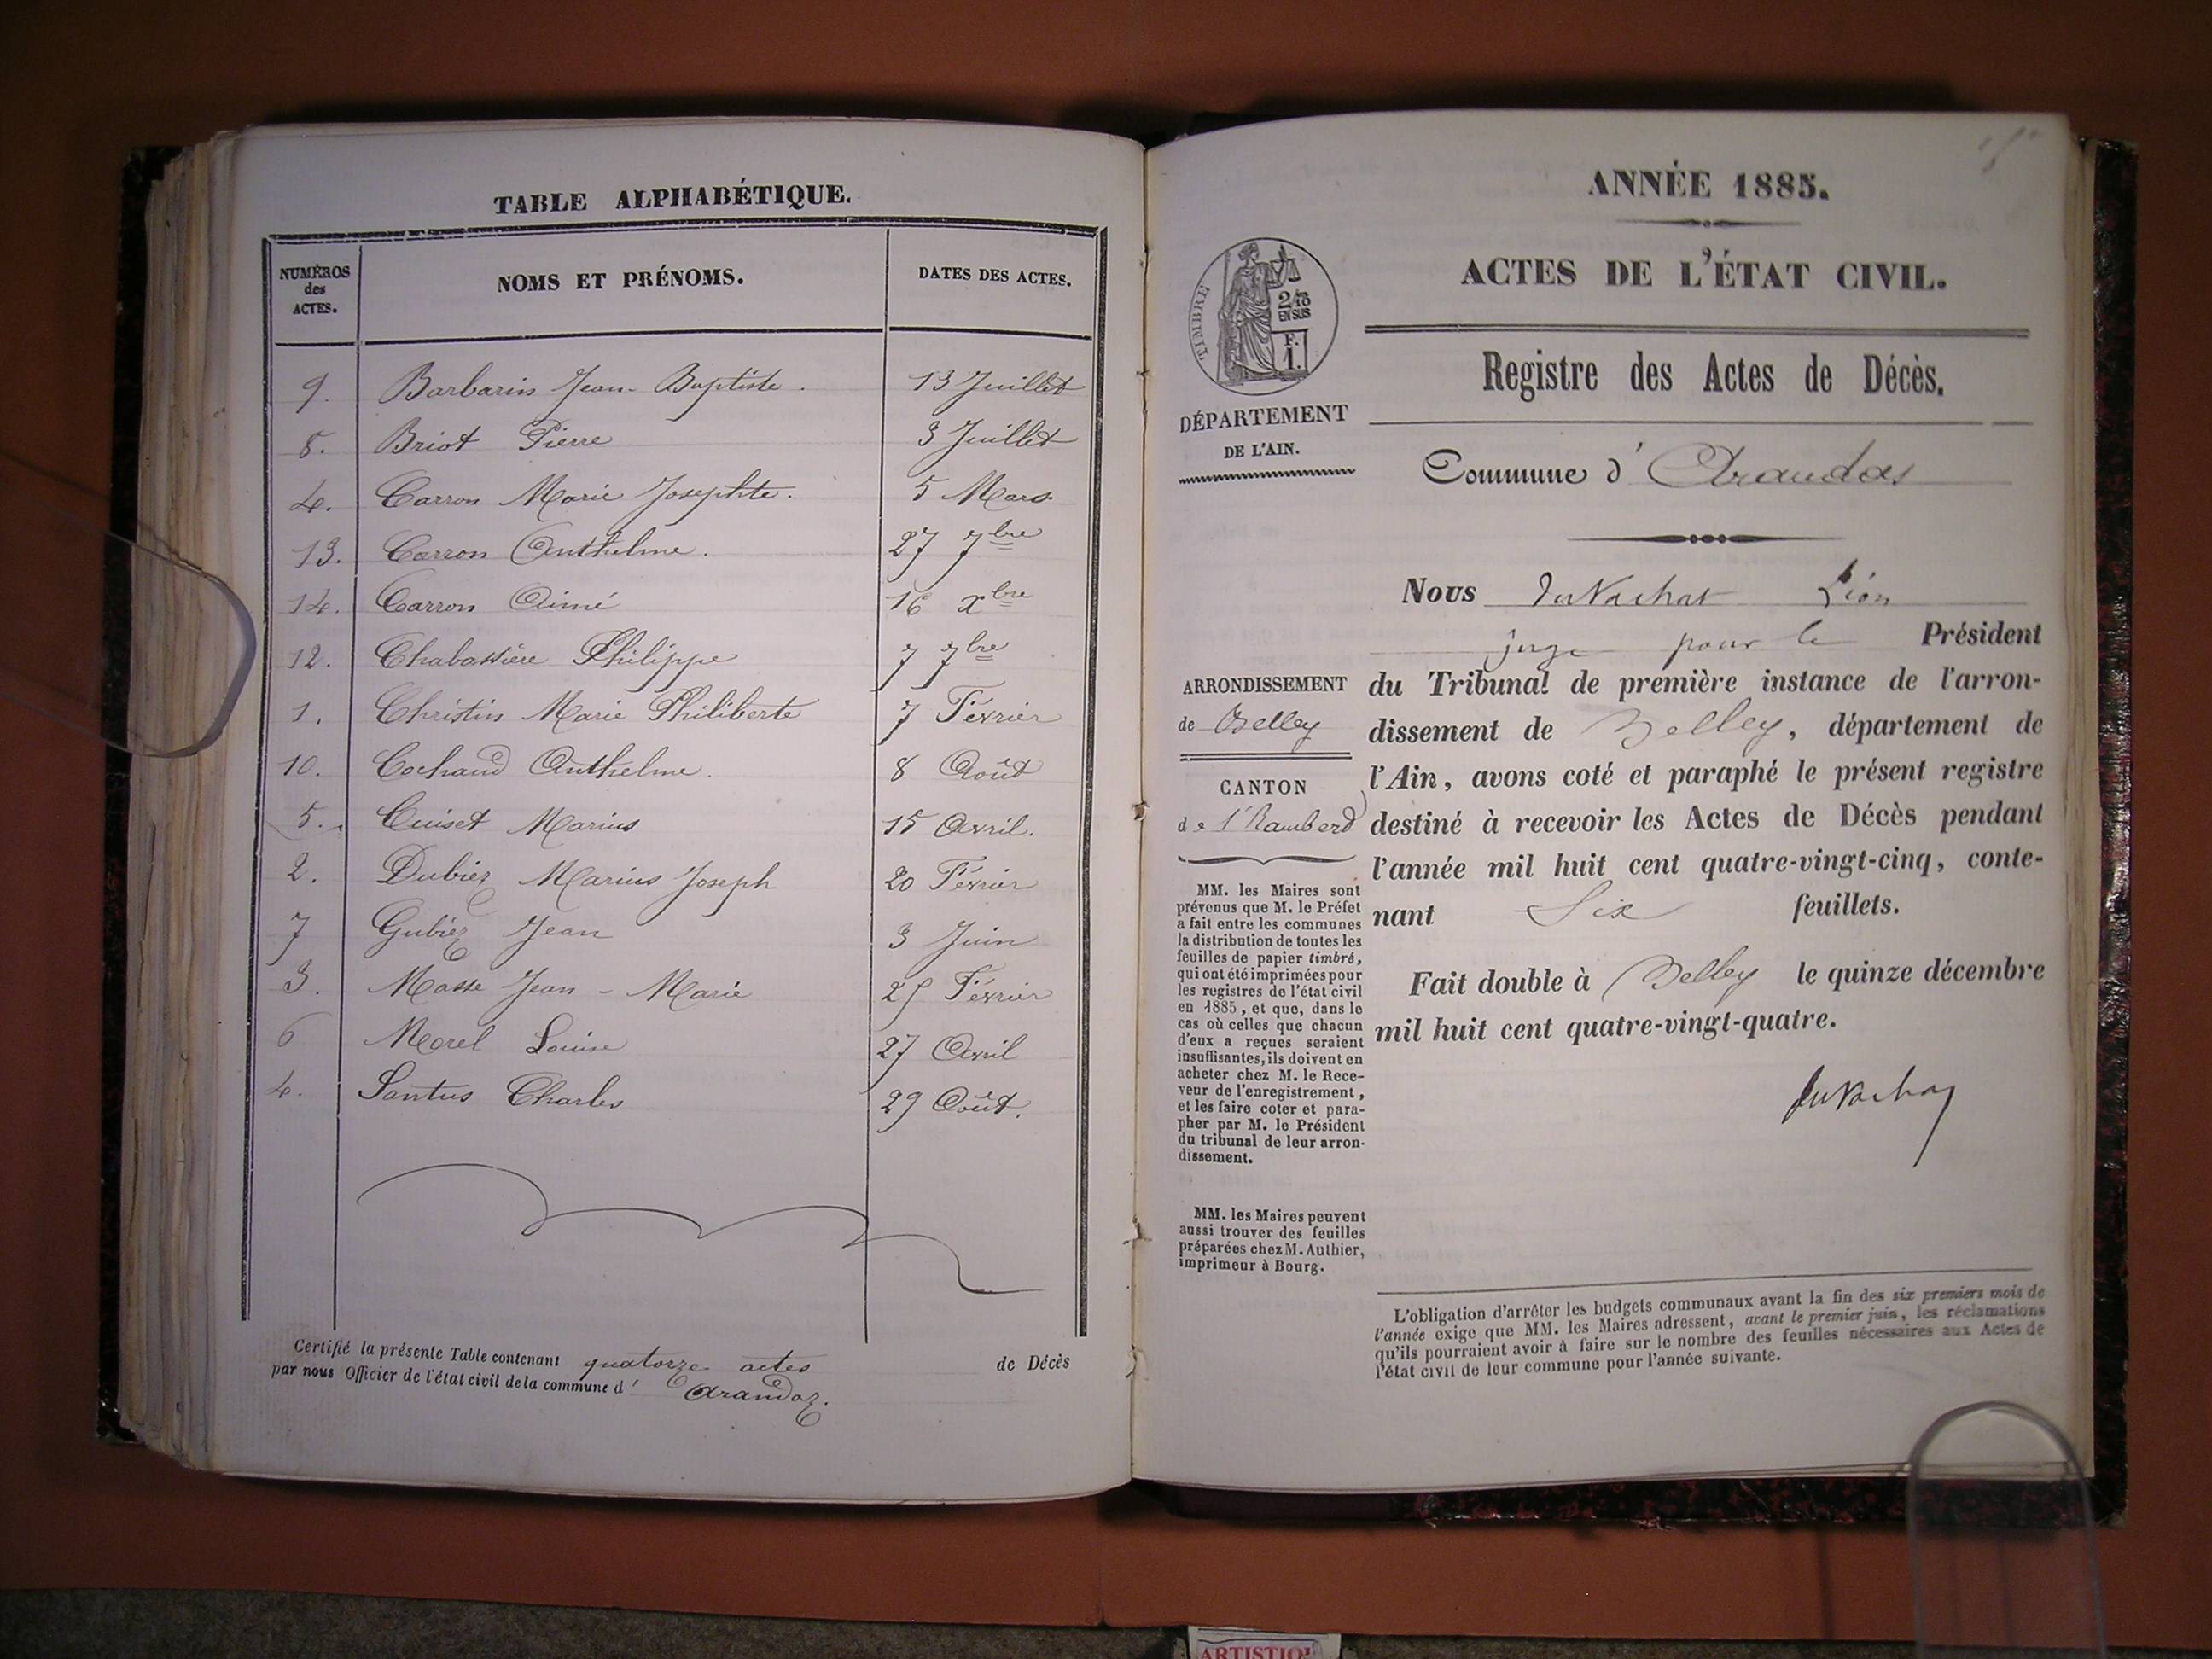 TABLE ALPHABÉTIQUE.
NUMÉROS des ACTES.
NOMS ET PRÉNOMS.
DATES DES ACTES.
9. Barbarin Jean-Baptiste. 13 Juillet
8. Briot Pierre 3 Juillet
4. Carron Marie Josephte. 5 Mars
13. Carron Anthelme. 27 7bre
14. Carron Aimé 16 Xbre
12. Chabassière Philippe 7 7bre
1. Christin Marie Philiberte 7 Février
10. Cochand Anthelme. 8 Août
5. Cuiset Marius 15 Avril.
2. Dubiez Marius Joseph 20 Février
7 Gubiez Jean 3 Juin
3. Masse Jean-Marie 25 Février
6 Morel Louise 27 Avril
4. Santus Charles 29 Août.
Certifié la présente Table contenant quatorze actes de Décès
par nous Officier de l'état civil de la commune d' Arandaz.
ANNÉE 1885.
ACTES DE L'ÉTAT CIVIL.
TIMBRE
2/10
EN SUS
F.
1.
Registre des Actes de Décès.
DÉPARTEMENT
DE L'AIN.
Commune d' Arandas
Nous Léon
juge pour le Président
ARRONDISSEMENT
de Belley
CANTON
de St Rambert
du Tribunal de première instance de l'arron-
dissement de Belley, département de
l'Ain, avons coté et paraphé le présent registre
destiné à recevoir les Actes de Décès pendant
l'année mil huit cent quatre-vingt-cinq, conte-
nant Six feuillets.
Fait double à Belley le quinze décembre
mil huit cent quatre-vingt-quatre.
MM. les Maires sont
prévenus que M. le Préfet
a fait entre les communes
la distribution de toutes les
feuilles de papier timbré,
qui ont été imprimées pour
les registres de l'état civil
en 1885, et que, dans le
cas où celles que chacun
d'eux a reçues seraient
insuffisantes, ils doivent en
acheter chez M. le Rece-
veur de l'enregistrement,
et les faire coter et para-
pher par M. le Président
du tribunal de leur arron-
dissement.
MM. les Maires peuvent
aussi trouver des feuilles
préparées chez M. Authier,
imprimeur à Bourg.
L'obligation d'arrêter les budgets communaux avant la fin des six premiers mois de
l'année exige que MM. les Maires adressent, avant le premier juin, les réclamations
qu'ils pourraient avoir à faire sur le nombre des feuilles nécessaires aux Actes de
l'état civil de leur commune pour l'année suivante.